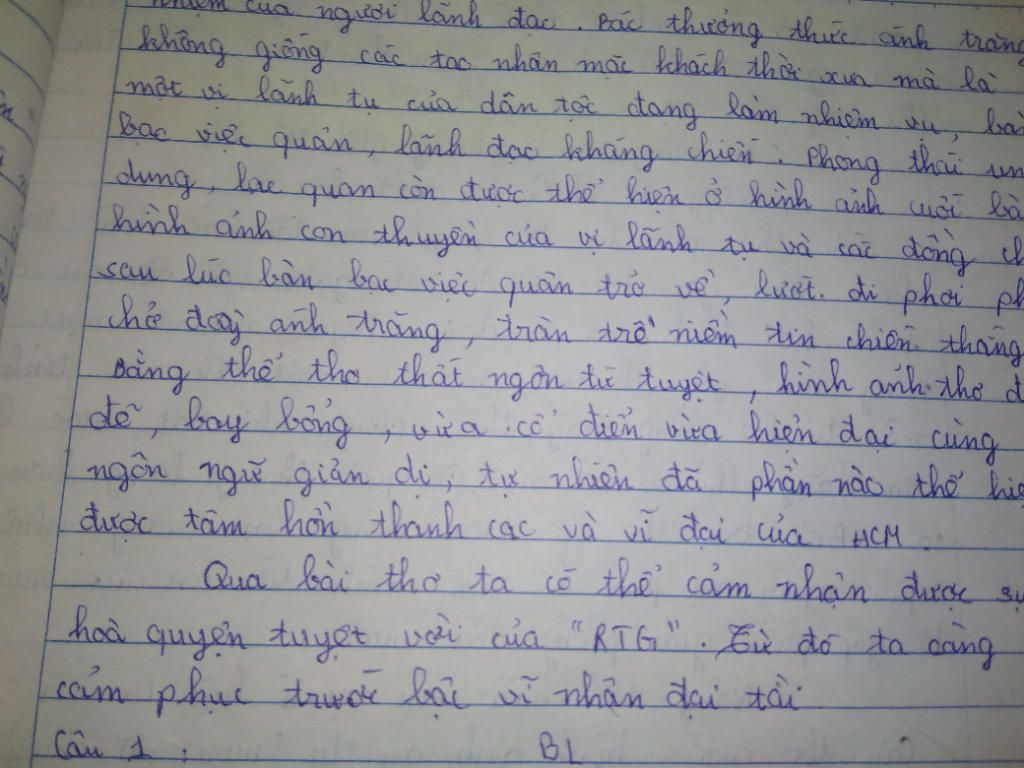 nhiệm của người lãnh đạo. Bác thưởng thức ánh trăng
không giống các tao nhân mặc khách thời xưa mà là
một vị lãnh tụ của dân tộc đang làm nhiệm vụ, bàn
bạc việc quân, lãnh đạo kháng chiến. Phong thái un
dung, lạc quan còn được thể hiện ở hình ảnh cuối bà
hình ảnh con thuyền của vị lãnh tụ và các đồng ch
sau lúc bàn bạc việc quân trở về, lướt đi phơi ph
chở đầy ánh trăng, tràn trề niềm tin chiến thắng
Bằng thể thơ thất ngôn tứ tuyệt, hình ảnh thơ đ
đẽ, bay bổng, vừa cổ điển vừa hiện đại cùng
ngôn ngữ giản dị, tự nhiên đã phần nào thể hiệ
được tâm hồn thanh cạc và vĩ đại của HCM.
Qua bài thơ ta có thể cảm nhận được sự
hoà quyện tuyệt vời của "RTG". Từ đó ta càng
cảm phục trước bậc vĩ nhân đại tài
Câu 1: BL